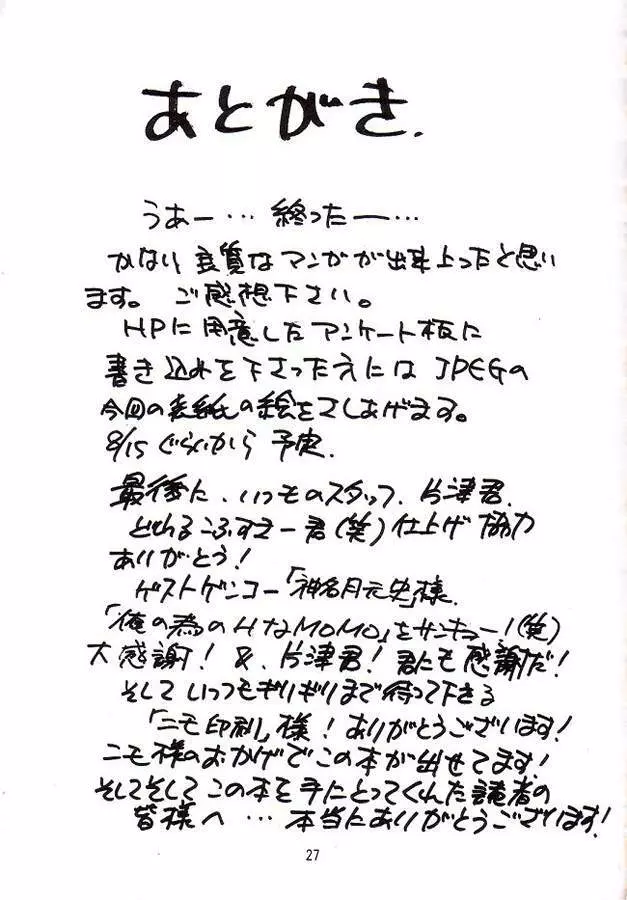 あとがき.
うあー… 終ったー…
かなり良質なマンガが出来上ったと思い
ます。ご感想下さい。
HPに用意したアンケート板に
書き込めを下さったえには JPEGの
今回の表紙の絵をさしあげます。
8/15ぐらいから 予定.
最後に、いつものスタッフ、片津君.
どれるこふすえー君(笑) 仕上げ協力
ありがとう!
ゲストゲンコー「神名月元史」様.
「俺の為のHなMOMO」をサンキュー!(笑)
大感謝! &、片津君! 君にも感謝だ!
そして いつもギリギリまで待って下さる
「ニモ印刷」様! ありがとうございます!
ニモ様のおかげでこの本が出せてます!
そしてそして この本を手にとってくれた読者の
皆様へ… 本当にありがとうございます!
27